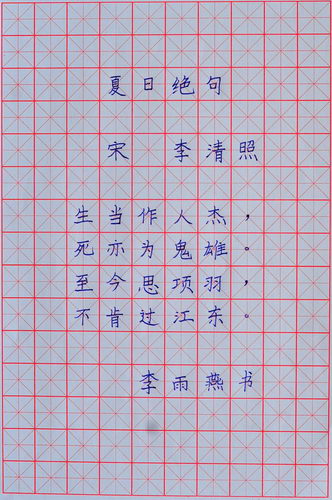 夏日绝句
宋 李清照
生当作人杰，
死亦为鬼雄。
至今思项羽，
不肯过江东。
李雨燕书